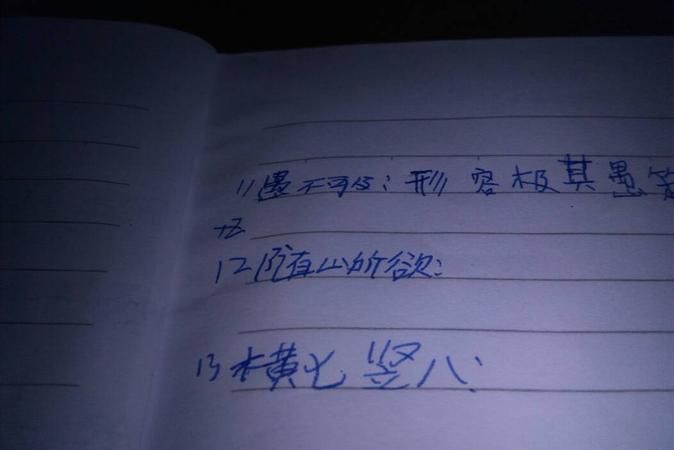 11愚不可及:形容极其愚笨
12 随心所欲:
13 横七竖八: